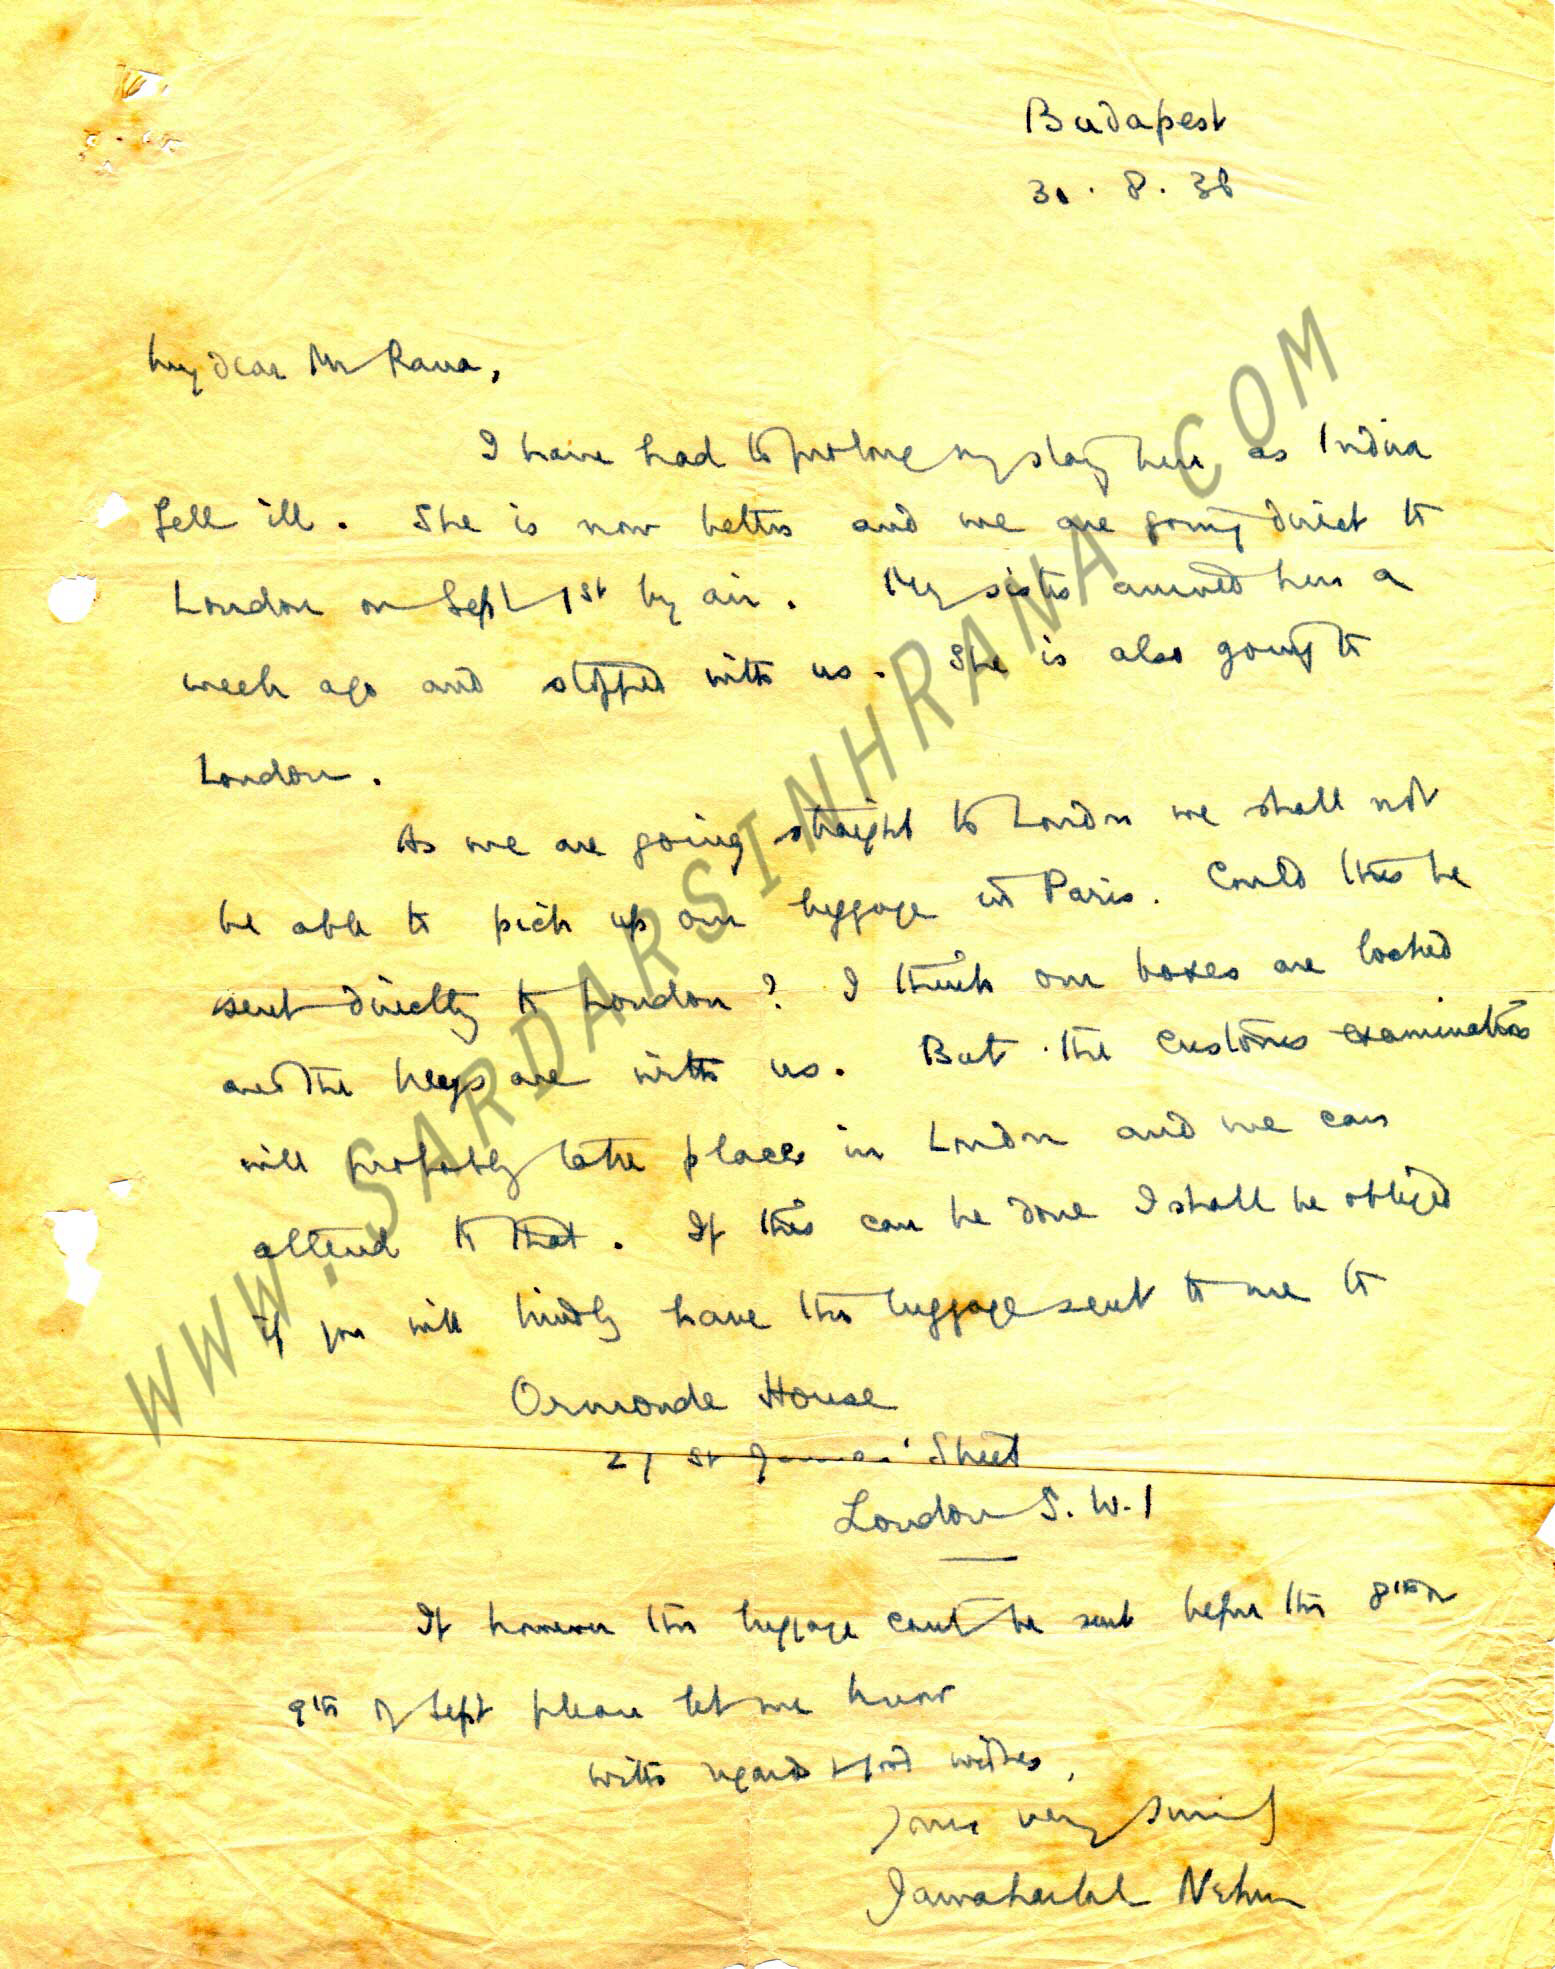 Budapest
30.8.38
My dear Mr Rana,
I have had to prolong my stay here as Indira
fell ill. She is now better and we are going direct to
London on Sept 1st by air. My sister arrived here a
week ago and stopped with us. She is also going to
London.
As we are going straight to London we shall not
be able to pick up our luggage in Paris. Could this be
sent directly to London? I think our boxes are locked
and the keys are with us. But the customs examination
will probably take place in London and we can
attend to that. If this can be done I shall be obliged
if you will kindly have the luggage sent to me to
Ormonde House
St James' Street
London S.W.1
If however the luggage can't be sent before the 8th or
9th of Sept please let me know
With regards & good wishes,
Yours very sincerely
Jawaharlal Nehru
WWW.SARDARSINHRANA.COM